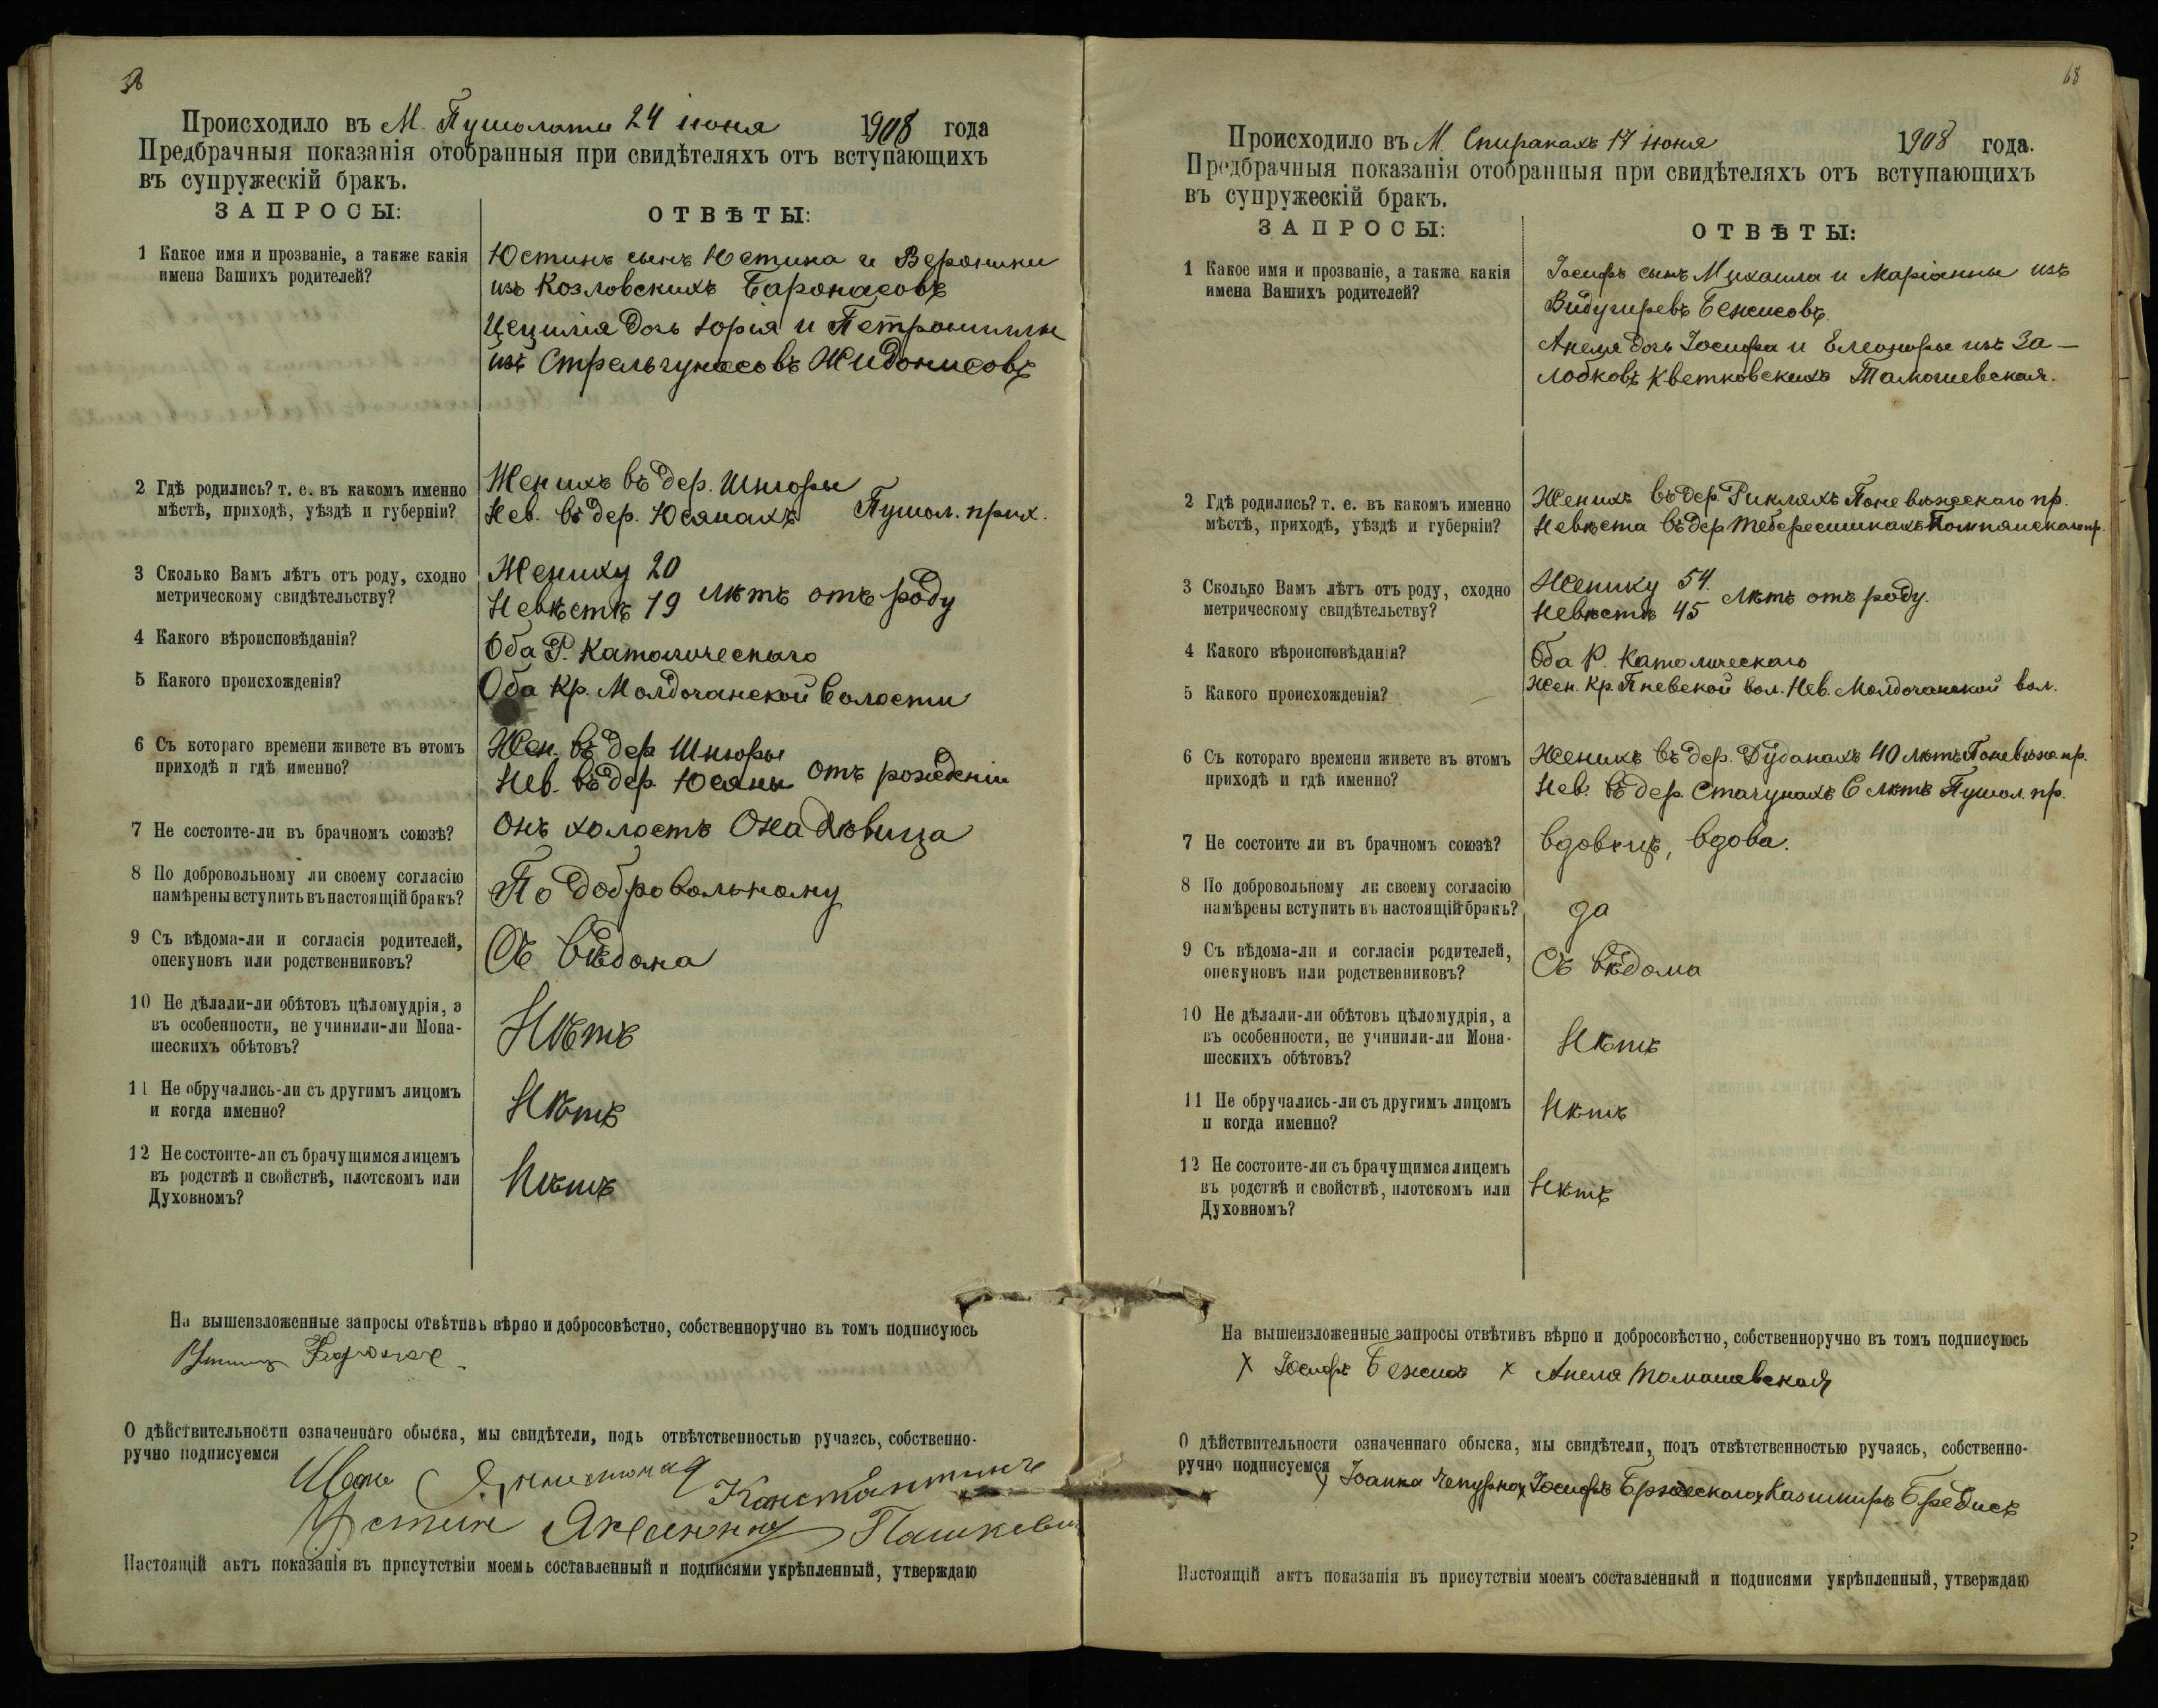 Происходило въ М. Пушолаты 24 іюня 1908 года
Предбрачныя показанія отобранныя при свидѣтеляхъ отъ вступающихъ
въ супружескій бракъ.
ЗАПРОСЫ: ОТВѢТЫ:
1 Какое имя и прозваніе, а также какія
имена Вашихъ родителей?
Юстинъ сынъ Юстина и Вероники
изъ Козловскихъ Баронасовъ
Цецилія дочь Юрія и Петрониллы
изъ Стрельчунасовъ Жидонисовъ
2 Гдѣ родились? т. е. въ какомъ именно
мѣстѣ, приходѣ, уѣздѣ и губерніи?
Женихъ въ дер. Шнюры
Нев. въ дер. Юсянахъ Пушол. прих.
3 Сколько Вамъ лѣтъ отъ роду, сходно
метрическому свидѣтельству?
Жениху 20
Невѣстѣ 19 лѣтъ отъ роду
4 Какого вѣроисповѣданія?
Оба Р. Католическаго
5 Какого происхожденія?
Оба Кр. Молдочанской Волости
6 Съ котораго времени живете въ этомъ
приходѣ и гдѣ именно?
Жен. въ дер Шнюры
Нев. въ дер. Юсяны отъ рожденія
7 Не состоите-ли въ брачномъ союзѣ?
Онъ холостъ Она дѣвица
8 По добровольному ли своему согласію
намѣрены вступить въ настоящій бракъ?
По добровольному
9 Съ вѣдома-ли и согласія родителей,
опекуновъ или родственниковъ?
Съ вѣдома
10 Не дѣлали-ли обѣтовъ цѣломудрія, а
въ особенности, не учинили-ли Мона-
шескихъ обѣтовъ?
Нѣтъ
11 Не обручались-ли съ другимъ лицомъ
и когда именно?
Нѣтъ
12 Не состоите-ли съ брачущимся лицемъ
въ родствѣ и свойствѣ, плотскомъ или
Духовномъ?
Нѣтъ
На вышеизложенные запросы отвѣтивъ вѣрно и добросовѣстно, собственноручно въ томъ подписуюсь
О дѣйствительности означеннаго обыска, мы свидѣтели, подъ отвѣтственностью ручаясь, собственно-
ручно подписуемся
Константинъ
Пашкевич
Настоящій актъ показанія въ присутствіи моемъ составленный и подписями укрѣпленный, утверждаю
68
Происходило въ М. Спиракахъ 17 іюня 1908 года.
Предбрачныя показанія отобранныя при свидѣтеляхъ отъ вступающихъ
въ супружескій бракъ.
ЗАПРОСЫ: ОТВѢТЫ:
1 Какое имя и прозваніе, а также какія
имена Вашихъ родителей?
Іосифъ сынъ Михаила и Маріанны изъ
Видугиревъ Бежисовъ.
Анеля дочь Іосифа и Елеоноры изъ За-
лобковъ Кветковскихъ Томошевская.
2 Гдѣ родились? т. е. въ какомъ именно
мѣстѣ, приходѣ, уѣздѣ и губерніи?
Женихъ въ дер. Рикляхъ Поневѣжскаго пр.
Невѣста въ дер Теберсишкахъ Помпянскаго пр.
3 Сколько Вамъ лѣтъ отъ роду, сходно
метрическому свидѣтельству?
Жениху 54.
Невѣстѣ 45 лѣтъ отъ роду.
4 Какого вѣроисповѣданія?
Оба Р. Католическаго
5 Какого происхожденія?
Жен. Кр. Пневской вол. Нев. Молдочанской вол.
6 Съ котораго времени живете въ этомъ
приходѣ и гдѣ именно?
Женихъ въ дер. Дуданахъ 40 лѣтъ Поневѣж. пр.
Нев. въ дер. Стачунахъ 6 лѣтъ Пушол. пр.
7 Не состоите ли въ брачномъ союзѣ?
вдовецъ, вдова.
8 По добровольному ли своему согласію
намѣрены вступить въ настоящій бракъ?
да
9 Съ вѣдома-ли и согласія родителей,
опекуновъ или родственниковъ?
Съ вѣдома
10 Не дѣлали-ли обѣтовъ цѣломудрія, а
въ особенности, не учинили-ли Мона-
шескихъ обѣтовъ?
Нѣтъ
11 Не обручались-ли съ другимъ лицомъ
и когда именно?
Нѣтъ
12 Не состоите-ли съ брачущимся лицемъ
въ родствѣ и свойствѣ, плотскомъ или
Духовномъ?
Нѣтъ
На вышеизложенные запросы отвѣтивъ вѣрно и добросовѣстно, собственноручно въ томъ подписуюсь
х Іосифъ Бежисъ х Анеля Томашевская
О дѣйствительности означеннаго обыска, мы свидѣтели, подъ отвѣтственностью ручаясь, собственно-
ручно подписуемся
х Іоанна Чепурно х Іосифъ х Казимиръ Бредисъ
Настоящій актъ показанія въ присутствіи моемъ составленный и подписями укрѣпленный, утверждаю